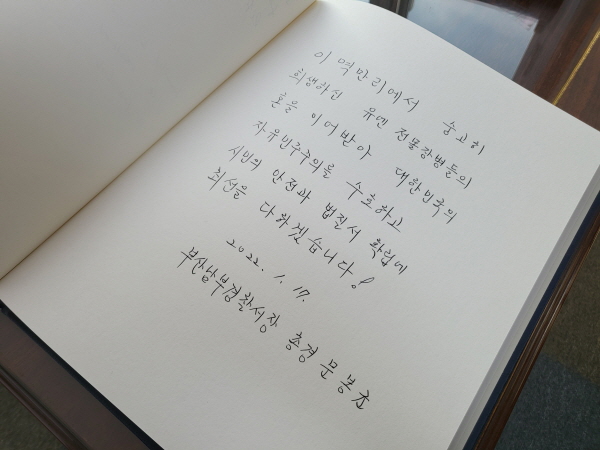 이 역만리에서 숭고히
희생하신 유엔 전몰장병들의
혼을 이어받아 대한민국의
자유민주주의를 수호하고
시민의 안전과 법질서 확립에
최선을 다하겠습니다!
2022. 1. 17.
부산남부경찰서장 총경 문봉균